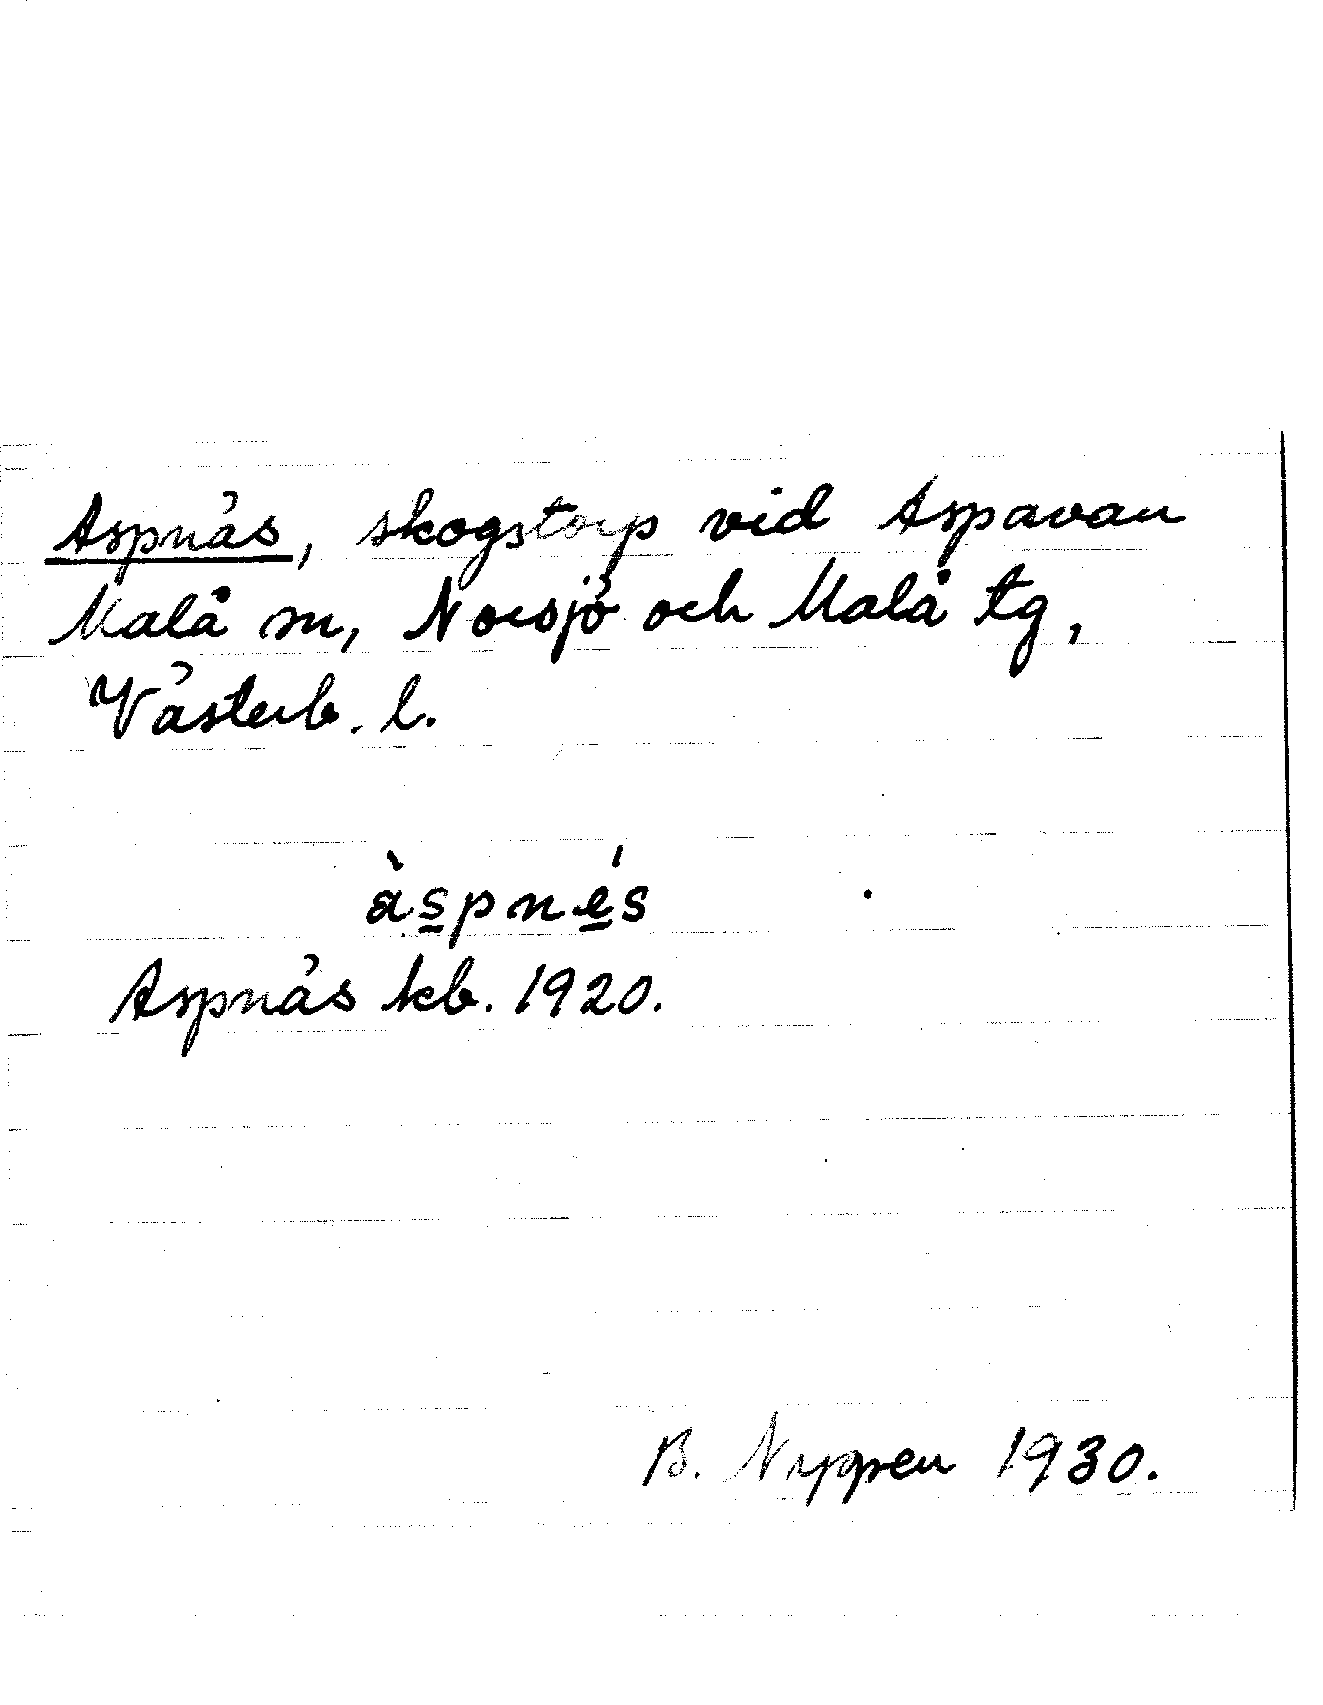 Aspnäs, skogstorp vid Aspavan
Malå sn, Norsjö och Malå tg,
Västerb. l.
àspnés
Aspnäs kb. 1920.
B. Nygren 1930.